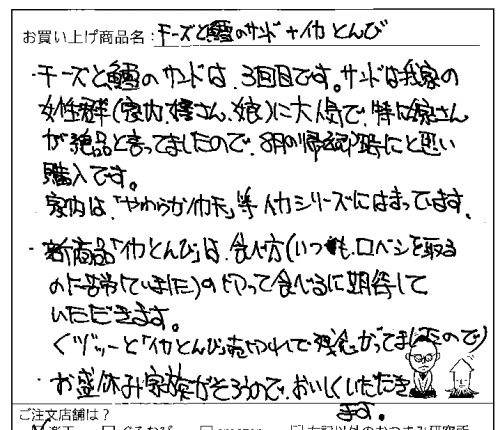 お買い上げ商品名：チーズと鱈のサンド＋イカとんび
・チーズと鱈のサンドは、3回目です。サンドは我家の
女性群（家内、嫁さん、娘）に大人気で、特に嫁さん
が絶品と言ってましたので、8月の帰省時にと思い
購入です。
家内は、「やわらかイカ天」等イカシリーズにはまっています。
・新商品「イカとんび」は、食べ方（いつも、口バシを取る
のに苦労していました）のドアって食べるに期待して
いただきます。
くヅッーと「イカとんび」売りつれて残念がってましたので）
・お盆休み家族がそろうので、おいしくいただき
ます。
ご注文店舗は？
楽天 □ ぐるなび □ amazon □ 左記以外のおつまみ研究所